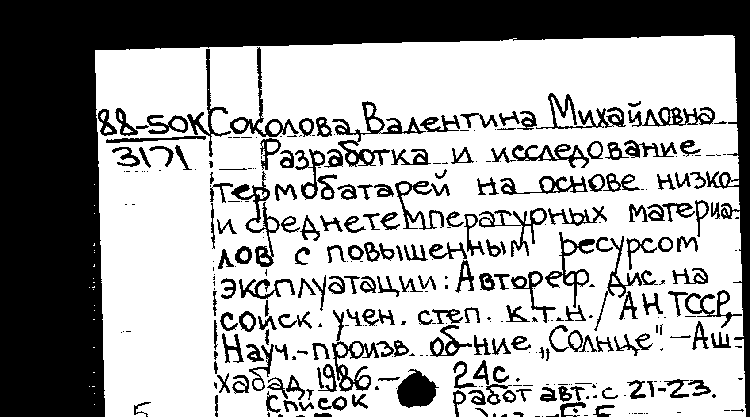 88-50К Соколова, Валентина Михайловна
3171 Разработка и исследование
термобатарей на основе низко-
и среднетемпературных материа-
лов с повышенным ресурсом
эксплуатации: Автореф. дис. на
соиск. учен. степ. к.т.н. / АН ТССР,
Науч.-произв. об-ние „Солнце". - Аш-
хабад, 1986. - 24с.
список работ авт.: с 21-23.